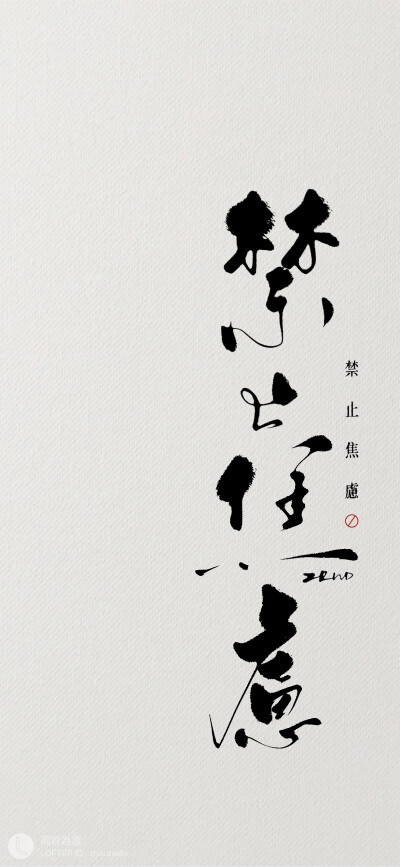 禁止焦慮
禁止焦慮
ZRND
LOFTER